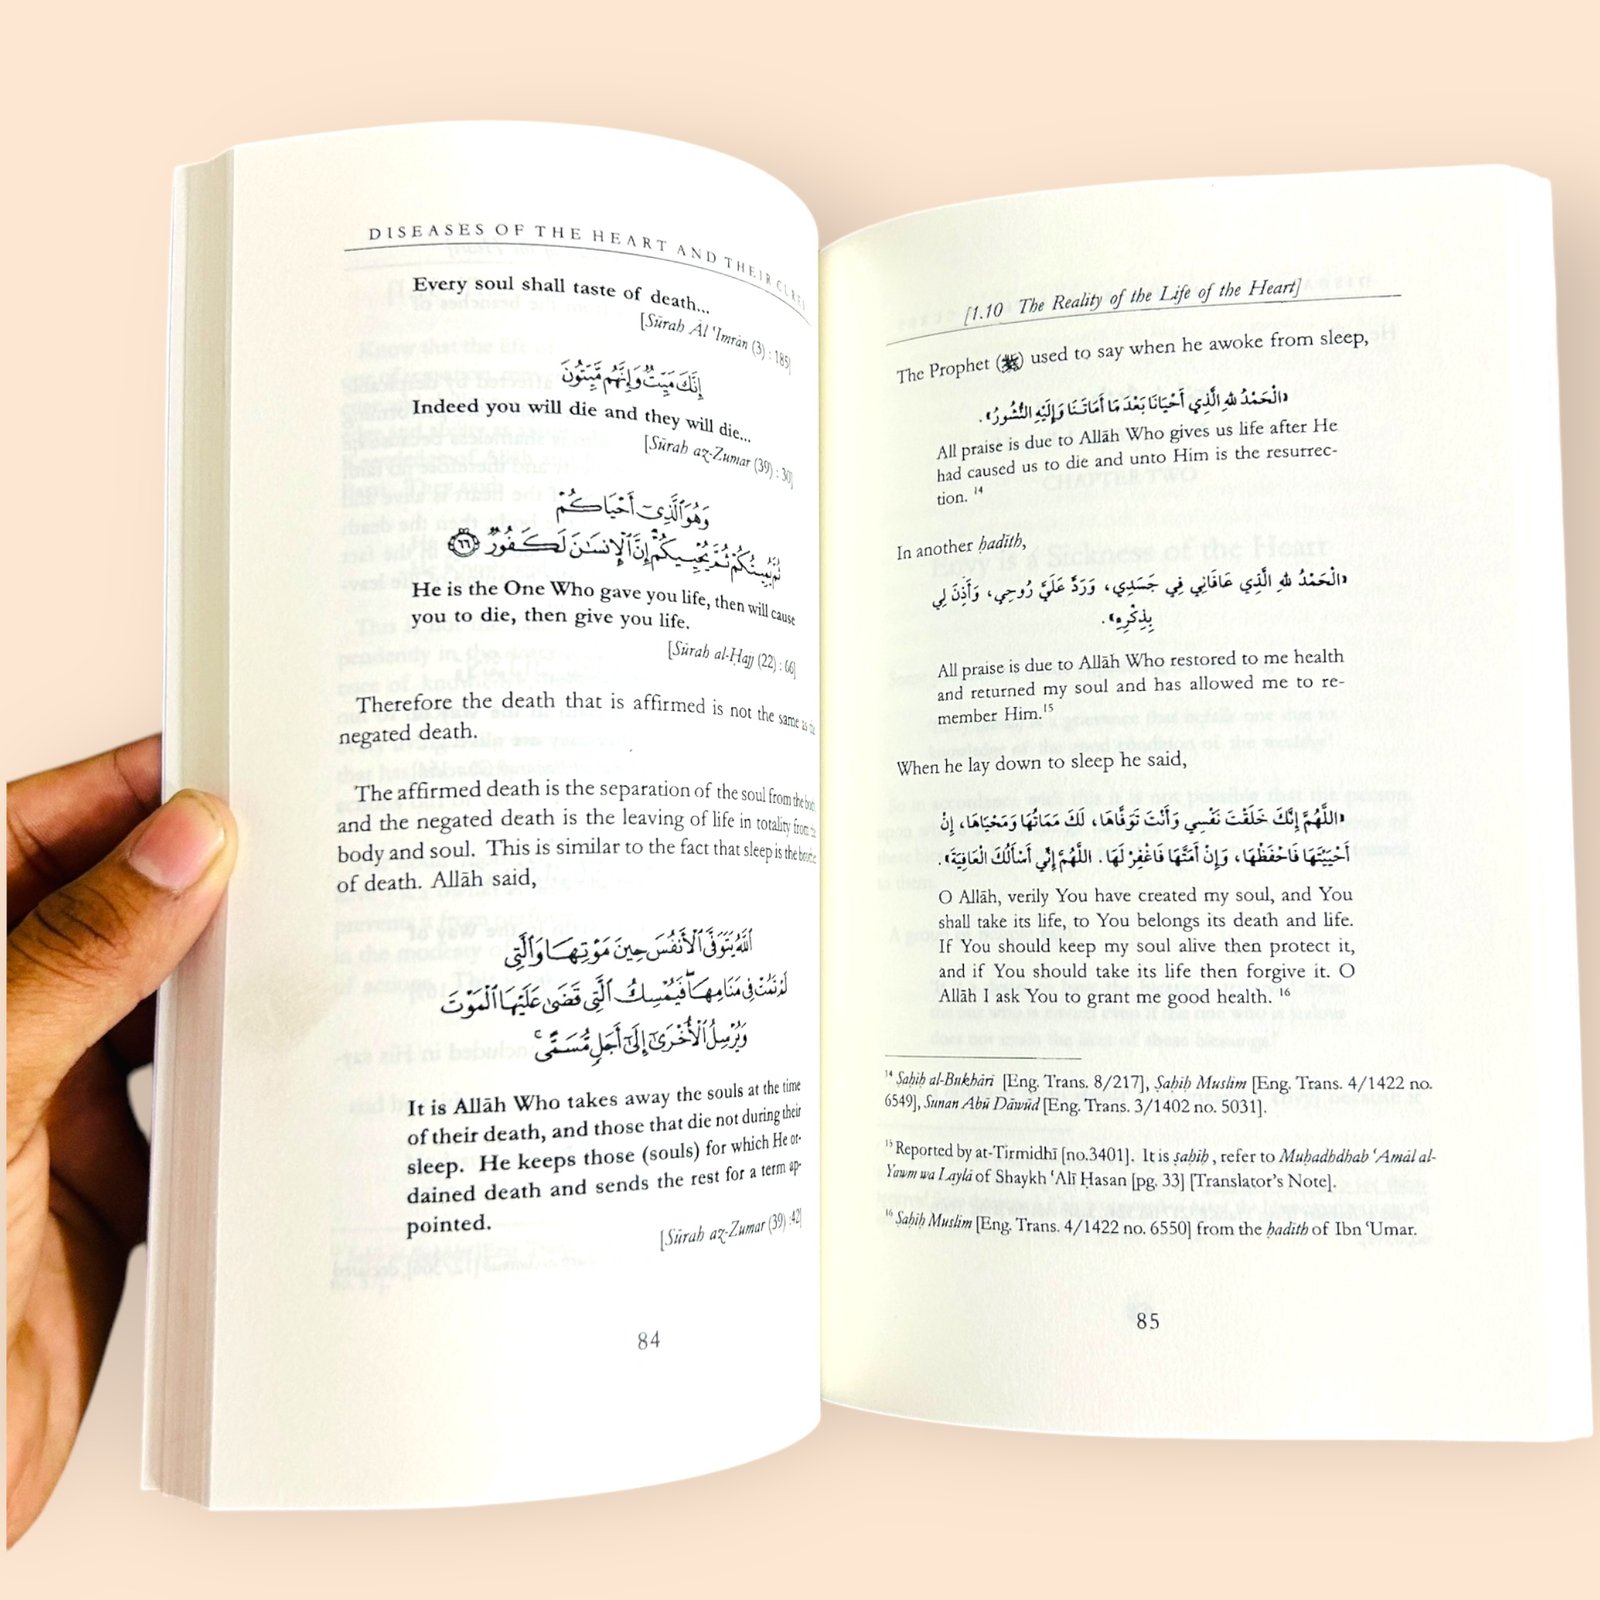 DISEASES OF THE HEART AND THEIR CURES
Every soul shall taste of death...
[Sūrah Āl 'Imrān (3) : 185]
إِنَّكَ مَيِّتٌ وَإِنَّهُم مَّيِّتُونَ
Indeed you will die and they will die...
[Sūrah az-Zumar (39) : 30]
وَهُوَ ٱلَّذِىٓ أَحْيَاكُمْ
ثُمَّ يُمِيتُكُمْ ثُمَّ يُحْيِيكُمْ إِنَّ ٱلْإِنسَٰنَ لَكَفُورٌ ٦٦
He is the One Who gave you life, then will cause
you to die, then give you life.
[Sūrah al-Ḥajj (22) : 66]
Therefore the death that is affirmed is not the same as the
negated death.
The affirmed death is the separation of the soul from the body
and the negated death is the leaving of life in totality from the
body and soul. This is similar to the fact that sleep is the brother
of death. Allāh said,
ٱللَّهُ يَتَوَفَّى ٱلْأَنفُسَ حِينَ مَوْتِهَا وَٱلَّتِى
لَمْ تَمُتْ فِى مَنَامِهَا فَيُمْسِكُ ٱلَّتِى قَضَىٰ عَلَيْهَا ٱلْمَوْتَ
وَيُرْسِلُ ٱلْأُخْرَىٰٓ إِلَىٰٓ أَجَلٍ مُّسَمًّى
It is Allāh Who takes away the souls at the time
of their death, and those that die not during their
sleep. He keeps those (souls) for which He or-
dained death and sends the rest for a term ap-
pointed.
[Sūrah az-Zumar (39) :42]
84
[1.10 The Reality of the Life of the Heart]
The Prophet (ﷺ) used to say when he awoke from sleep,
«الْحَمْدُ للهِ الَّذِي أَحْيَانَا بَعْدَ مَا أَمَاتَنَا وَإِلَيْهِ النُّشُورُ».
All praise is due to Allāh Who gives us life after He
had caused us to die and unto Him is the resurrec-
tion. 14
In another ḥadīth,
«الْحَمْدُ للهِ الَّذِي عَافَانِي فِي جَسَدِي، وَرَدَّ عَلَيَّ رُوحِي، وَأَذِنَ لِي
بِذِكْرِهِ».
All praise is due to Allāh Who restored to me health
and returned my soul and has allowed me to re-
member Him.15
When he lay down to sleep he said,
«اللَّهُمَّ إِنَّكَ خَلَقْتَ نَفْسِي وَأَنْتَ تَوَفَّاهَا، لَكَ مَمَاتُهَا وَمَحْيَاهَا، إِنْ
أَحْيَيْتَهَا فَاحْفَظْهَا، وَإِنْ أَمَتَّهَا فَاغْفِرْ لَهَا. اللَّهُمَّ إِنِّي أَسْأَلُكَ الْعَافِيَةَ».
O Allāh, verily You have created my soul, and You
shall take its life, to You belongs its death and life.
If You should keep my soul alive then protect it,
and if You should take its life then forgive it. O
Allāh I ask You to grant me good health. 16
14 Ṣaḥīḥ al-Bukhārī [Eng. Trans. 8/217], Ṣaḥīḥ Muslim [Eng. Trans. 4/1422 no.
6549], Sunan Abū Dāwūd [Eng. Trans. 3/1402 no. 5031].
15 Reported by at-Tirmidhī [no.3401]. It is ṣaḥīḥ, refer to Muhadhdhab 'Amāl al-
Yawm wa Laylā of Shaykh 'Alī Ḥasan [pg. 33] [Translator's Note].
16 Ṣaḥīḥ Muslim [Eng. Trans. 4/1422 no. 6550] from the ḥadīth of Ibn 'Umar.
85